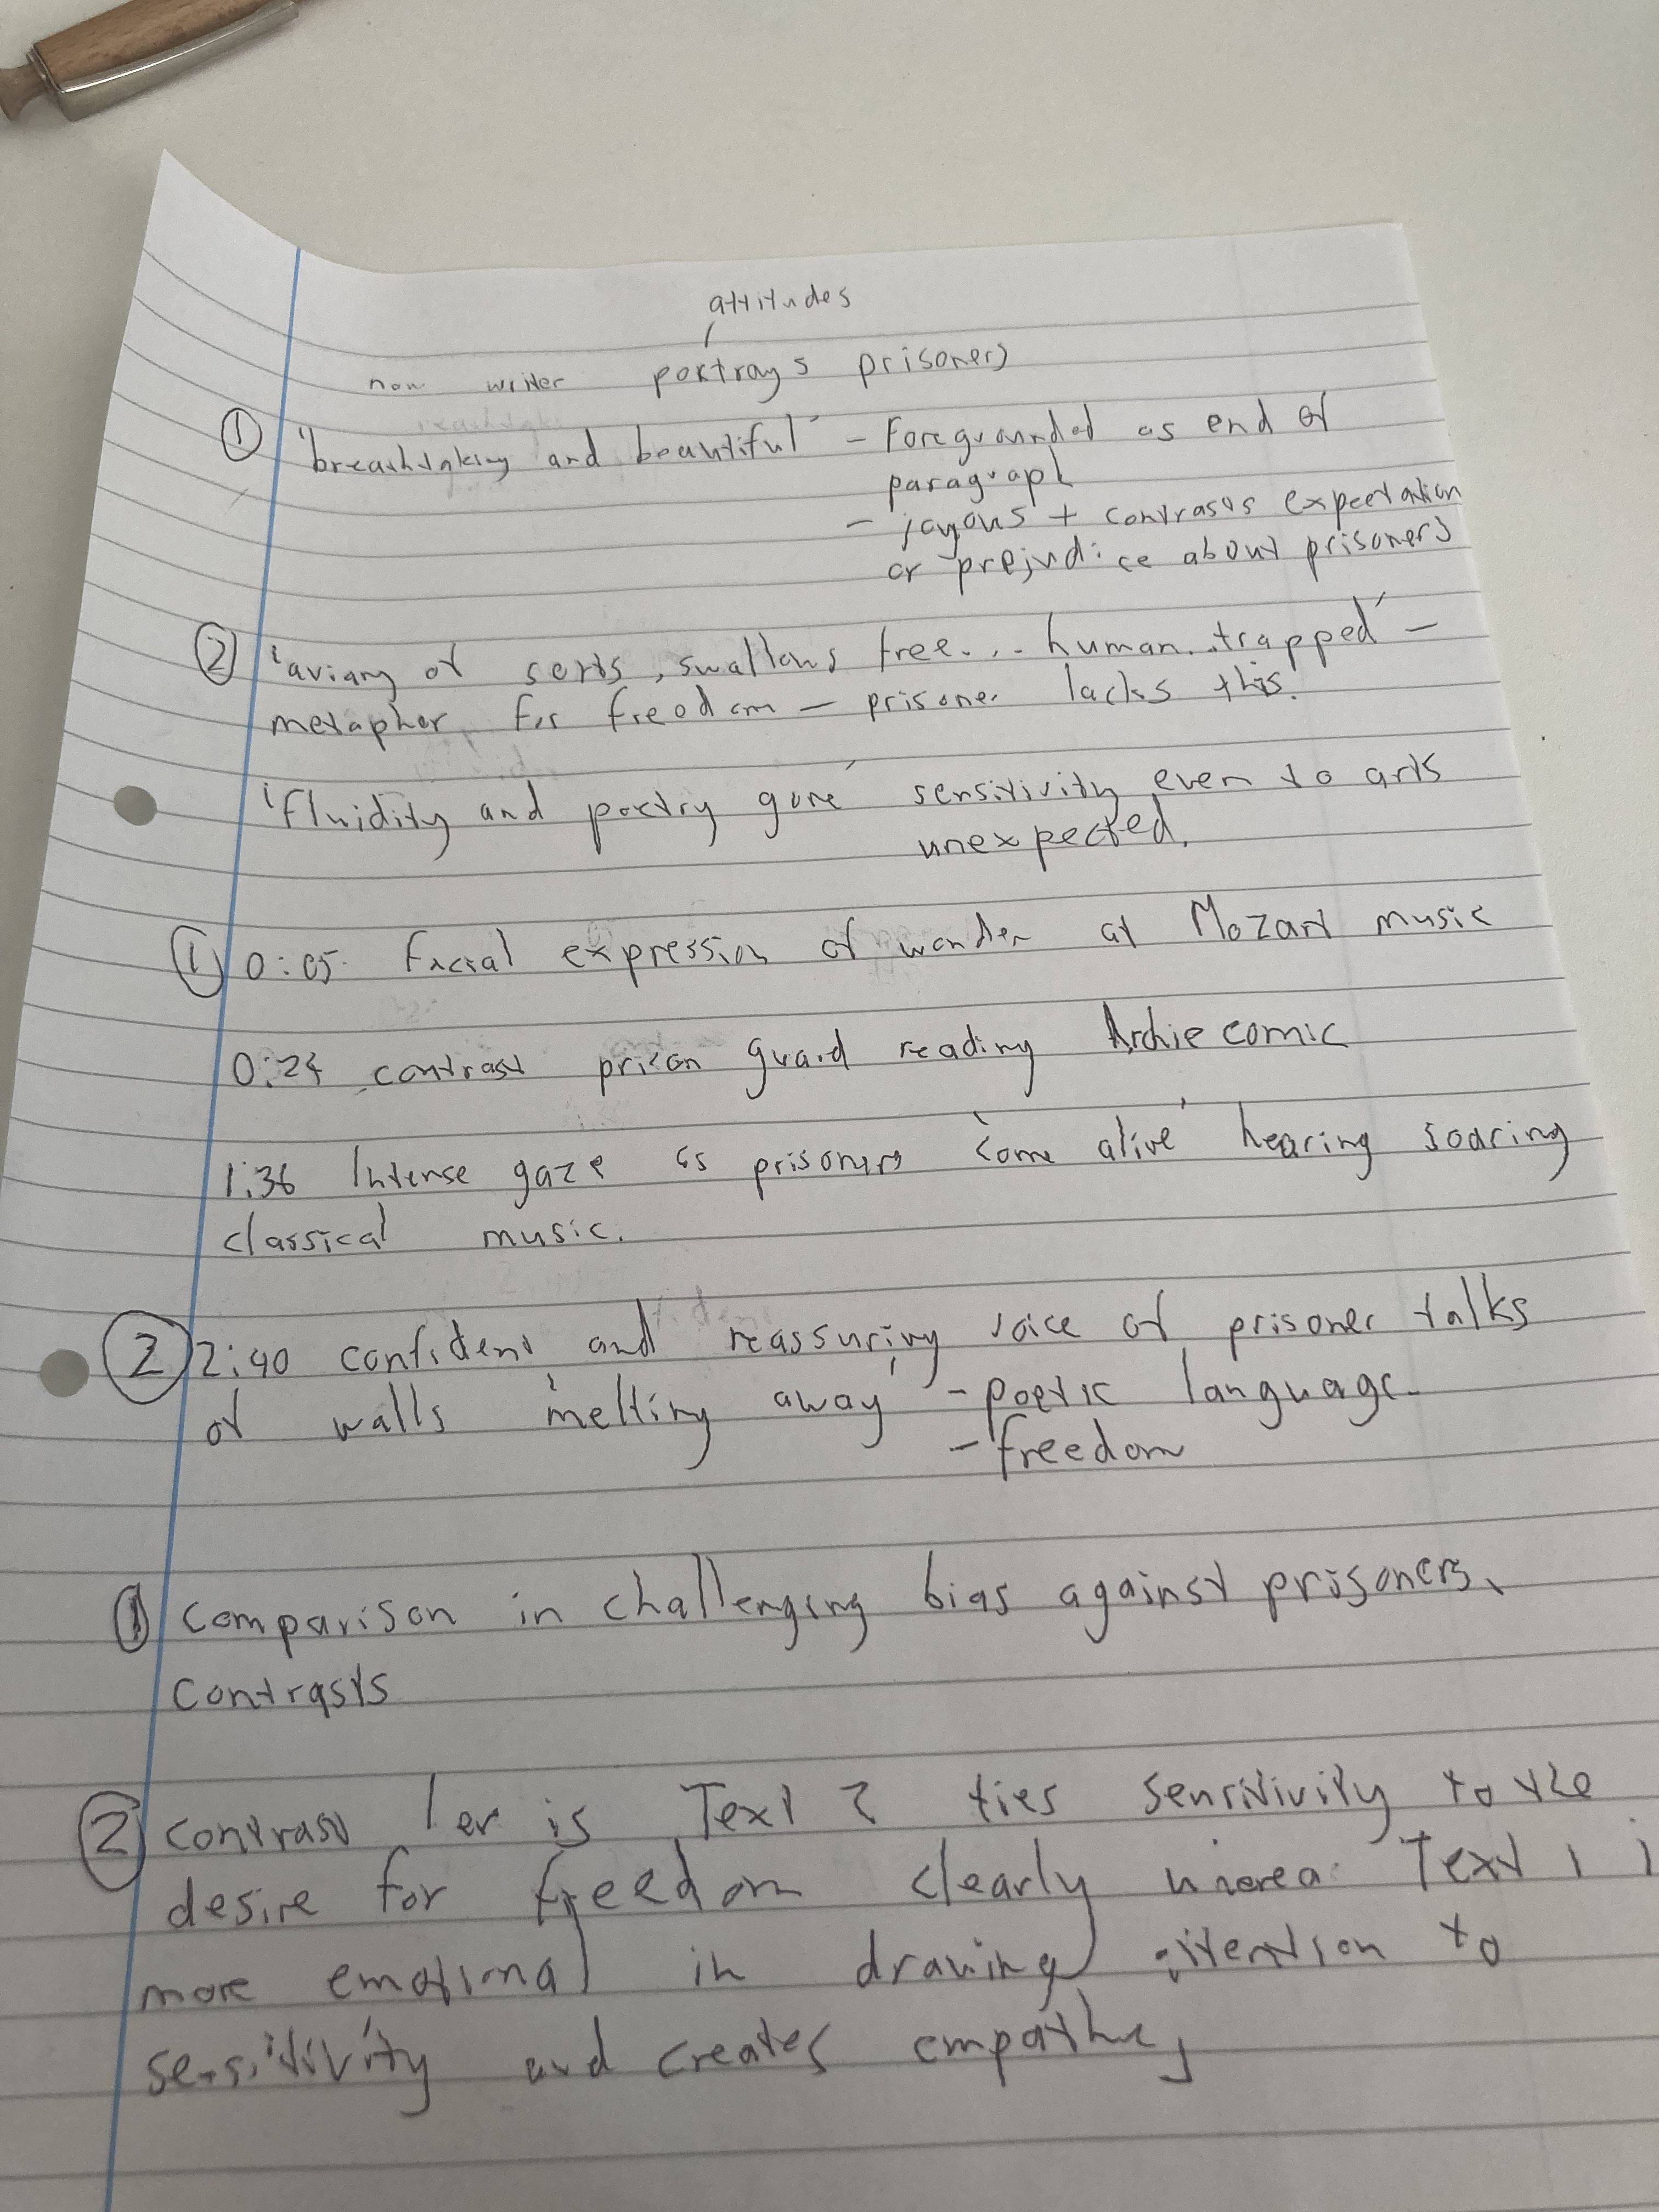 attitudes
how writer portrays prisoners
① 'breathtaking and beautiful' - Foregrounded as end of
paragraph
- joyous + contrasts expectation
or prejudice about prisoners
② 'aviary of sorts, swallows free... human...trapped' -
metaphor for freedom - prisoner lacks this.
'fluidity and poetry gone' sensitivity even to arts
unexpected.
① 0:05 facial expression of wonder at Mozart music
0:24 contrast prison guard reading Archie comic
1:36 Intense gaze as prisoners 'come alive' hearing soaring
classical music.
② 2:40 confident and reassuring voice of prisoner talks
of walls 'melting away' - poetic language.
- freedom
① comparison in challenging bias against prisoners.
contrasts
② contrast is Text 2 ties sensitivity to the
desire for freedom clearly Text 1
more emotional in drawing attention to
sensitivity and creates empathy